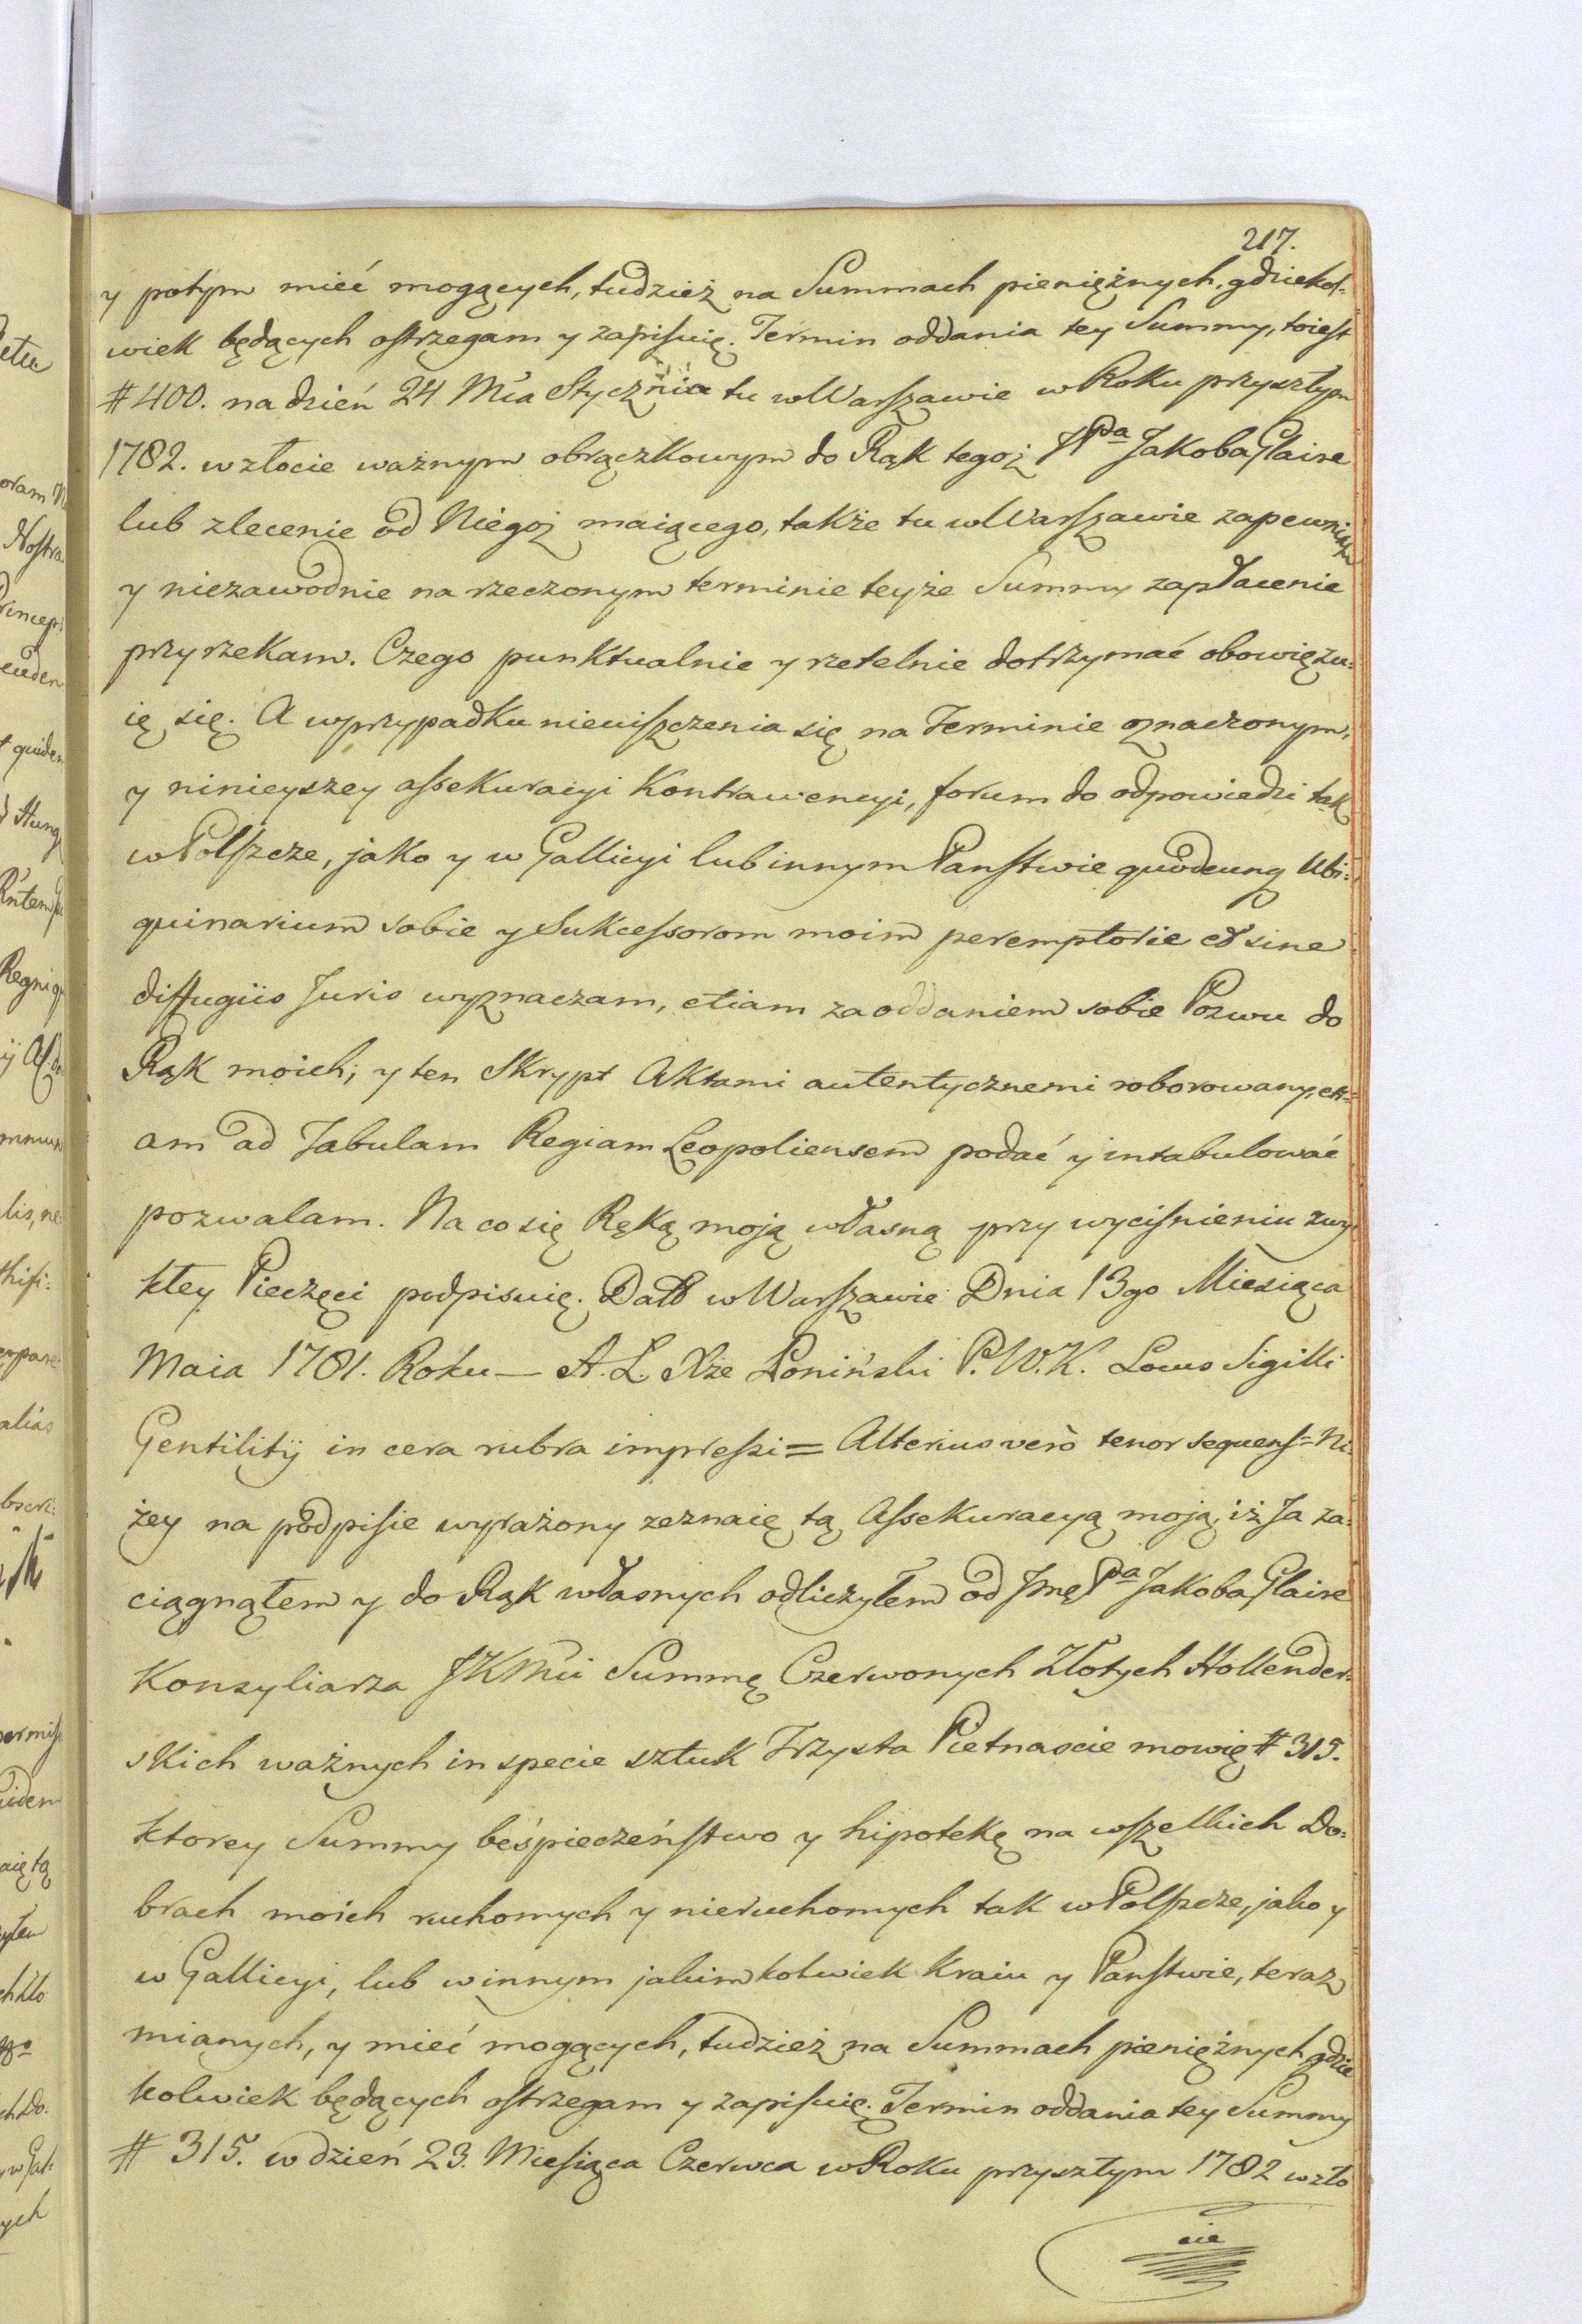 217.
y potym mieć mogących, tudzież na Summach pieniężnych, gdziekol-
wiek będących ostrzegam y zapisuię. Termin oddania tey Summy, toiest
# 400. na dzień 24 Mca Stycznia tu w Warszawie w Roku przyszłym
1782. w złocie ważnym obrączkowym do Rąk tegoż JPa Jakoba Glaire
lub zlecenie od Niegoż maiącego, także tu w Warszawie zapewniam
y niezawodnie na rzeczonym terminie teyże Summy zapłacenie
przyrzekam. Czego punktualnie y rzetelnie dotrzymać obowięzu-
ię się. A w przypadku nieuiszczenia się na Terminie oznaczonym,
y ninieyszey assekuracyi kontrawencyi, forum do odpowiedzi tak
w Polszcze, jako y w Gallicyi lub innym Panstwie quodcunq Ubi-
quinarium sobie y Sukcessorom moim peremptorie et sine
diffugiis Juris wyznaczam, etiam za oddaniem sobie Pozwu do
Rąk moich; y ten Skrypt Aktami autentycznemi roborowany, eti-
am ad Tabulam Regiam Leopoliensem podać y intabulować
pozwalam. Na co się Ręką moją własną przy wyciśnieniu zwy-
kłey Pieczęci podpisuię. Datt w Warszawie Dnia 13go Miesiąca
Maia 1781. Roku — A. L. Xże Poniński P. W. K. Locus Sigilli
Gentilitÿ in cera rubra impressi = Alterius verò tenor sequens = Ni-
żey na podpisie wyrażony zeznaię tą Assekuracyą moją, iż Ja za-
ciągnąłem y do Rąk własnych odliczyłem od Jmę Pa Jakoba Glaire
Konsyliarza JKMci Summę Czerwonych Złotych Hollender-
skich ważnych in specie sztuk Trzysta Pietnascie mowię # 315.
ktorey Summy beśpieczeństwo y hipotekę na wszelkich Do-
brach moich ruchomych y nieruchomych tak w Polszcze, jako y
w Gallicyi, lub w innym jakimkolwiek Kraiu y Panstwie, teraz
mianych, y mieć mogących, tudzież na Summach pieniężnych gdzie
kolwiek będących ostrzegam y zapisuię. Termin oddania tey Summy
# 315. w dzień 23. Miesiąca Czerwca w Roku przyszłym 1782 w zło
cie